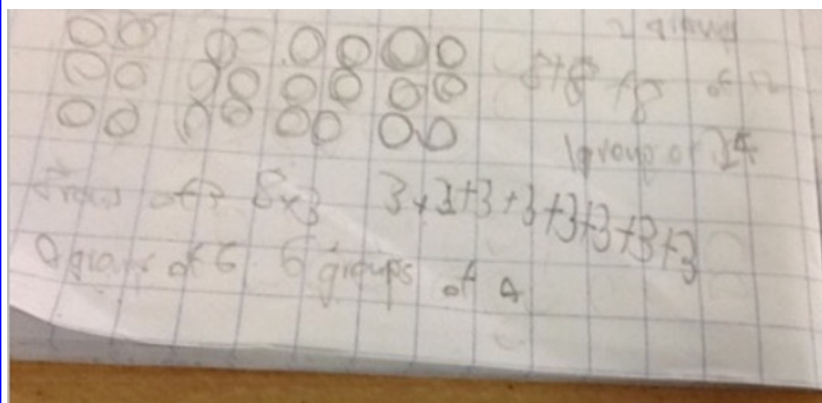 2 groups
8+8+8 of 12
1 group of 24
of 8x3 3+3+3+3+3+3+3+3
groups of 6 6 groups of 4